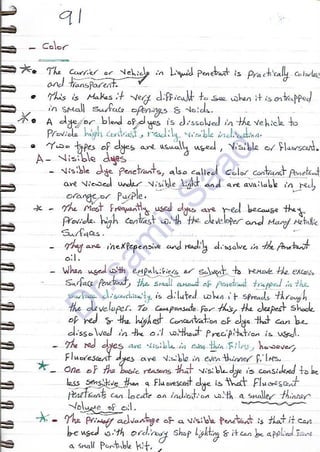 91
- Color
* • The carrier or vehicle in Liquid penetrant is practically colorless
and transparent.
• This is Makes it very difficult to see when it is entrapped
in small surface openings & voids.
* • A dye or blend of dyes is dissolved in the vehicle to
Provide high contrast, readily visible indication.
• Two types of dyes are usually used, Visible or Fluorscent.
A- Visible dyes
- Visible dye Penetrants, also called Color contrast Penetrant
are viewed under visible light and are available in red,
orange or Purple.
* - The Most Frequently used dyes are red because they
Provide high contrast with the developer and Many Metallic
Surfaces.
- They are inexpensive and readily dissolve in the Penetrant
oil.
- When used with emulsifiers or Solvent to remove the excess
Surface Penetrant, the small amount of penetrant trapped in the
surface discontinuity is diluted when it spreads through
the developer. To compensate for this, the deepest shade
of red & the highest Concentration of dye that can be
dissolved in the oil without Precipitation is used.
- The red dyes are visible in thin films, however,
Fluorescent dyes are visible in even thinner films.
* - One of the basic reasons that visible dye is considered to be
less sensitive than a Fluorescent dye is that Fluorescent
Penetrants can locate an indication with a smaller thinner
Volume of oil.
* - The Primary advantage of a visible Penetrant is that it can
be used with ordinary shop lighting & it can be applied from
a small Portable kit.